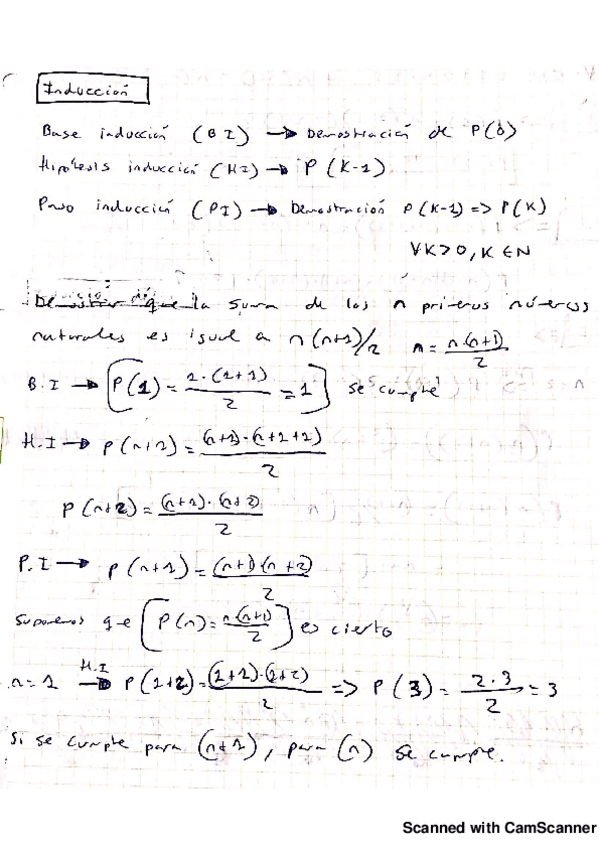 Inducción
Base inducción (BI) → Demostración de P(0)
Hipótesis inducción (HI) → P (K-1)
Paso inducción (PI) → Demostración P(K-1) => P(K)
∀K>0, K ∈ N
Demostrar que la suma de los n primeros números
naturales es igual a n(n+1)/2 n = n·(n+1)/2
B.I → [P(1) = 1·(1+1)/2 = 1] se cumple
H.I → P(n+1) = (n+1)·(n+1+1)/2
P(n+2) = (n+1)·(n+2)/2
P.I → P(n+1) = (n+1)(n+2)/2
Suponemos que [P(n) = n(n+1)/2] es cierto
n=1 H.I → P(1+2) = (1+1)·(1+2)/2 => P(3) = 2·3/2 = 3
Si se cumple para (n+1), para (n) se cumple.
Scanned with CamScanner